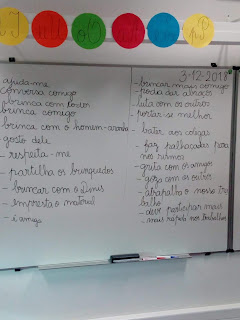 3-12-2018
ajuda-me
conversa comigo
brinca com todos
brinca comigo
brinca com o homem-aranha
gosto dele
- respeita-me
- partilha os brinquedos
- brincar com o Dinis
- empresta o material
- é amigo
- brincar mais comigo
- pode dar abraços
- luta com os outros
- portar-se melhor
- bater aos colegas
- faz palhaçadas para
nos rirmos
- grita com os amigos
- goza com os outros
- atrapalha o nosso tra
balho
- deve participar mais
- mais rápido nos trabalhos